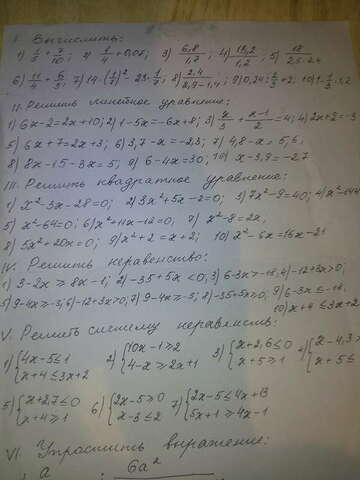 I. Вычислить:
1) 1/5 + 7/10; 2) 1/4 + 0,07; 3) 6,8/1,7; 4) 13,2/1,2; 5) 18/2,5·2,4
6) 11/4 + 6/5; 7) 14·(1/7)² - 23·1/7; 8) 2,4/2,9-1,4; 9) 0,24: +2; 10) 1·1/3·1,2
II. Решить линейное уравнение:
1) 6x-2=2x+10; 2) 1-5x=-6x+8; 3) x/3 + x-1/2 = 4; 4) 2x+2=-3
5) 6x+7=2x+3; 6) 3,7-x=-2,3; 7) 4,8-x=5,6;
8) 8x-15-3x=5; 9) 6-4x=30; 10) x-3,7=-2,7
III. Решить квадратное уравнение:
1) x²-3x-28=0; 2) 3x²+5x-2=0; 3) 7x²-9=40; 4) x²-144
5) x²-64=0; 6) x²+11x-12=0; 7) x²-8=2x,
8) 5x²+20x=0; 9) x²+2=x+2; 10) x²-6x=16x-21
IV. Решить неравенство:
1) 3-2x ≥ 8x-1; 2) -35+5x<0; 3) 6-3x>-18; 4) -12+3x>0;
5) 9-4x>-3; 6) -12+3x>0; 7) 9-4x≥-5; 8) -35+5x≥0; 9) 6-3x≤-18.
10) x+4≤3x+2
V. Решить систему неравенств:
1) {4x-5≤1 2) {10x-1≥2 3) {x+2,6≤0 4) {x-4,3
x+4≤3x+2 4-x≥2x+1 x+5≥1 x+5≤
5) {x+2,7≤0 6) {2x-5≥0 7) {2x-5≤4x+13
x+4≥1 x-3≤2 5x+1≥4x-1
VI. Упростить выражение:
a 6a²